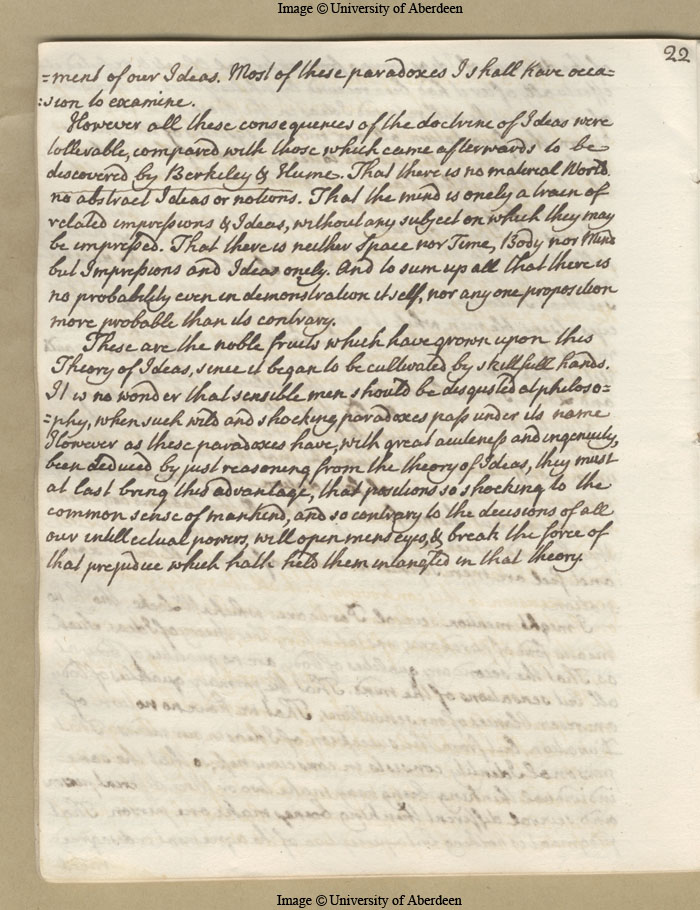 Image © University of Aberdeen
22
=ment of our Ideas. Most of these paradoxes I shall have occa=
=sion to examine.
However all these consequences of the doctrine of Ideas were
tollerable, compared with those which came afterwards to be
discovered by Berkeley & Hume. That there is no material World.
no abstract Ideas or notions. That the mind is onely a train of
related impressions & Ideas, without any subject on which they may
be impressed. That there is neither Space nor Time, Body nor Mind
but Impressions and Ideas onely. And to sum up all that there is
no probability even in demonstration it self, nor any one proposition
more probable than its contrary.
These are the noble fruits which have grown upon this
Theory of Ideas, since it began to be cultivated by skillfull hands.
It is no wonder that sensible men should be disgusted at philoso=
=phy, when such wild and shocking paradoxes pass under its name
However as these paradoxes have, with great acuteness and ingenuity,
been deduced by just reasoning from the theory of Ideas, they must
at last bring this advantage, that positions so shocking to the
common sense of mankind, and so contrary to the decisions of all
our intillectual powers, will open mens eyes, & break the force of
that prejudice which hath held them intangled in that theory.
Image © University of Aberdeen